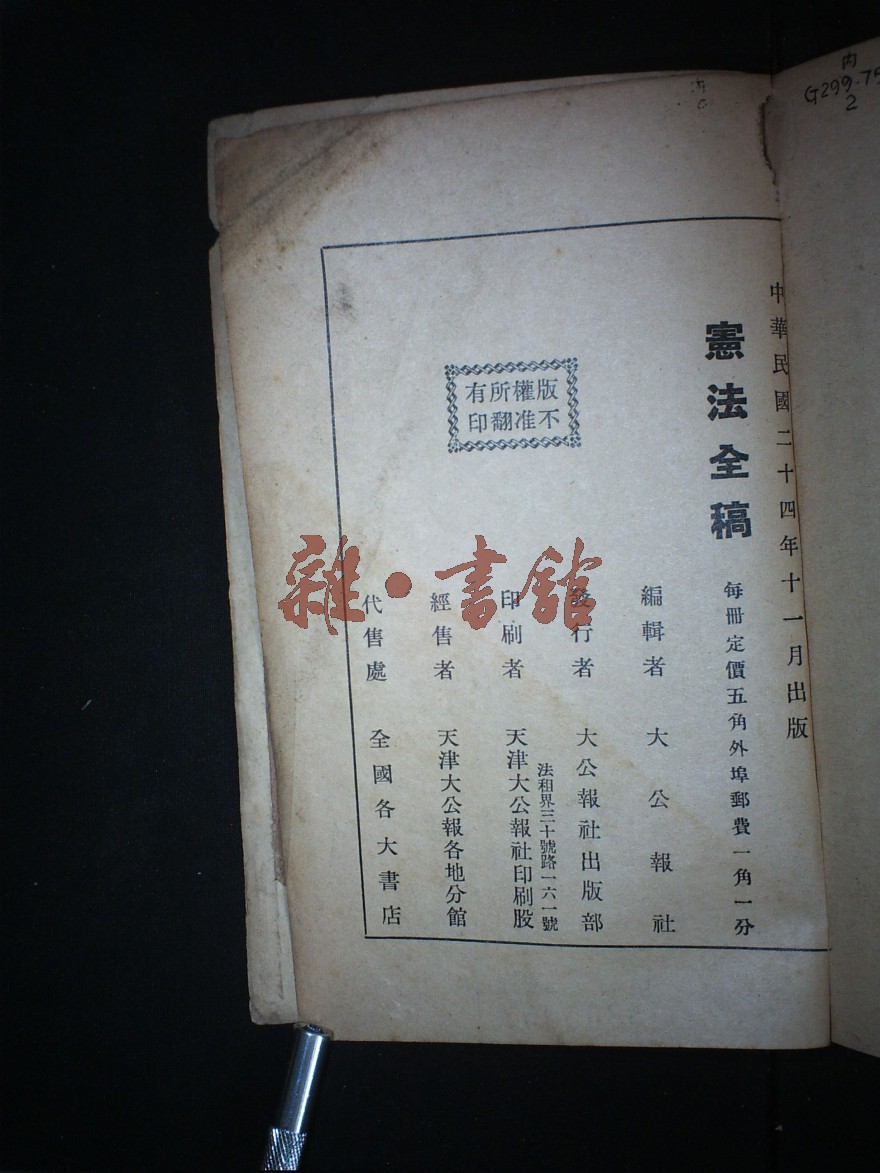 內
G299.75
2
中華民國二十四年十一月出版
憲法全稿
每冊定價五角外埠郵費一角一分
編輯者 大公報社
發行者 大公報社出版部
法租界三十號路一六一號
印刷者 天津大公報社印刷股
經售者 天津大公報各地分館
代售處 全國各大書店
版權所有
不准翻印
雜·書館